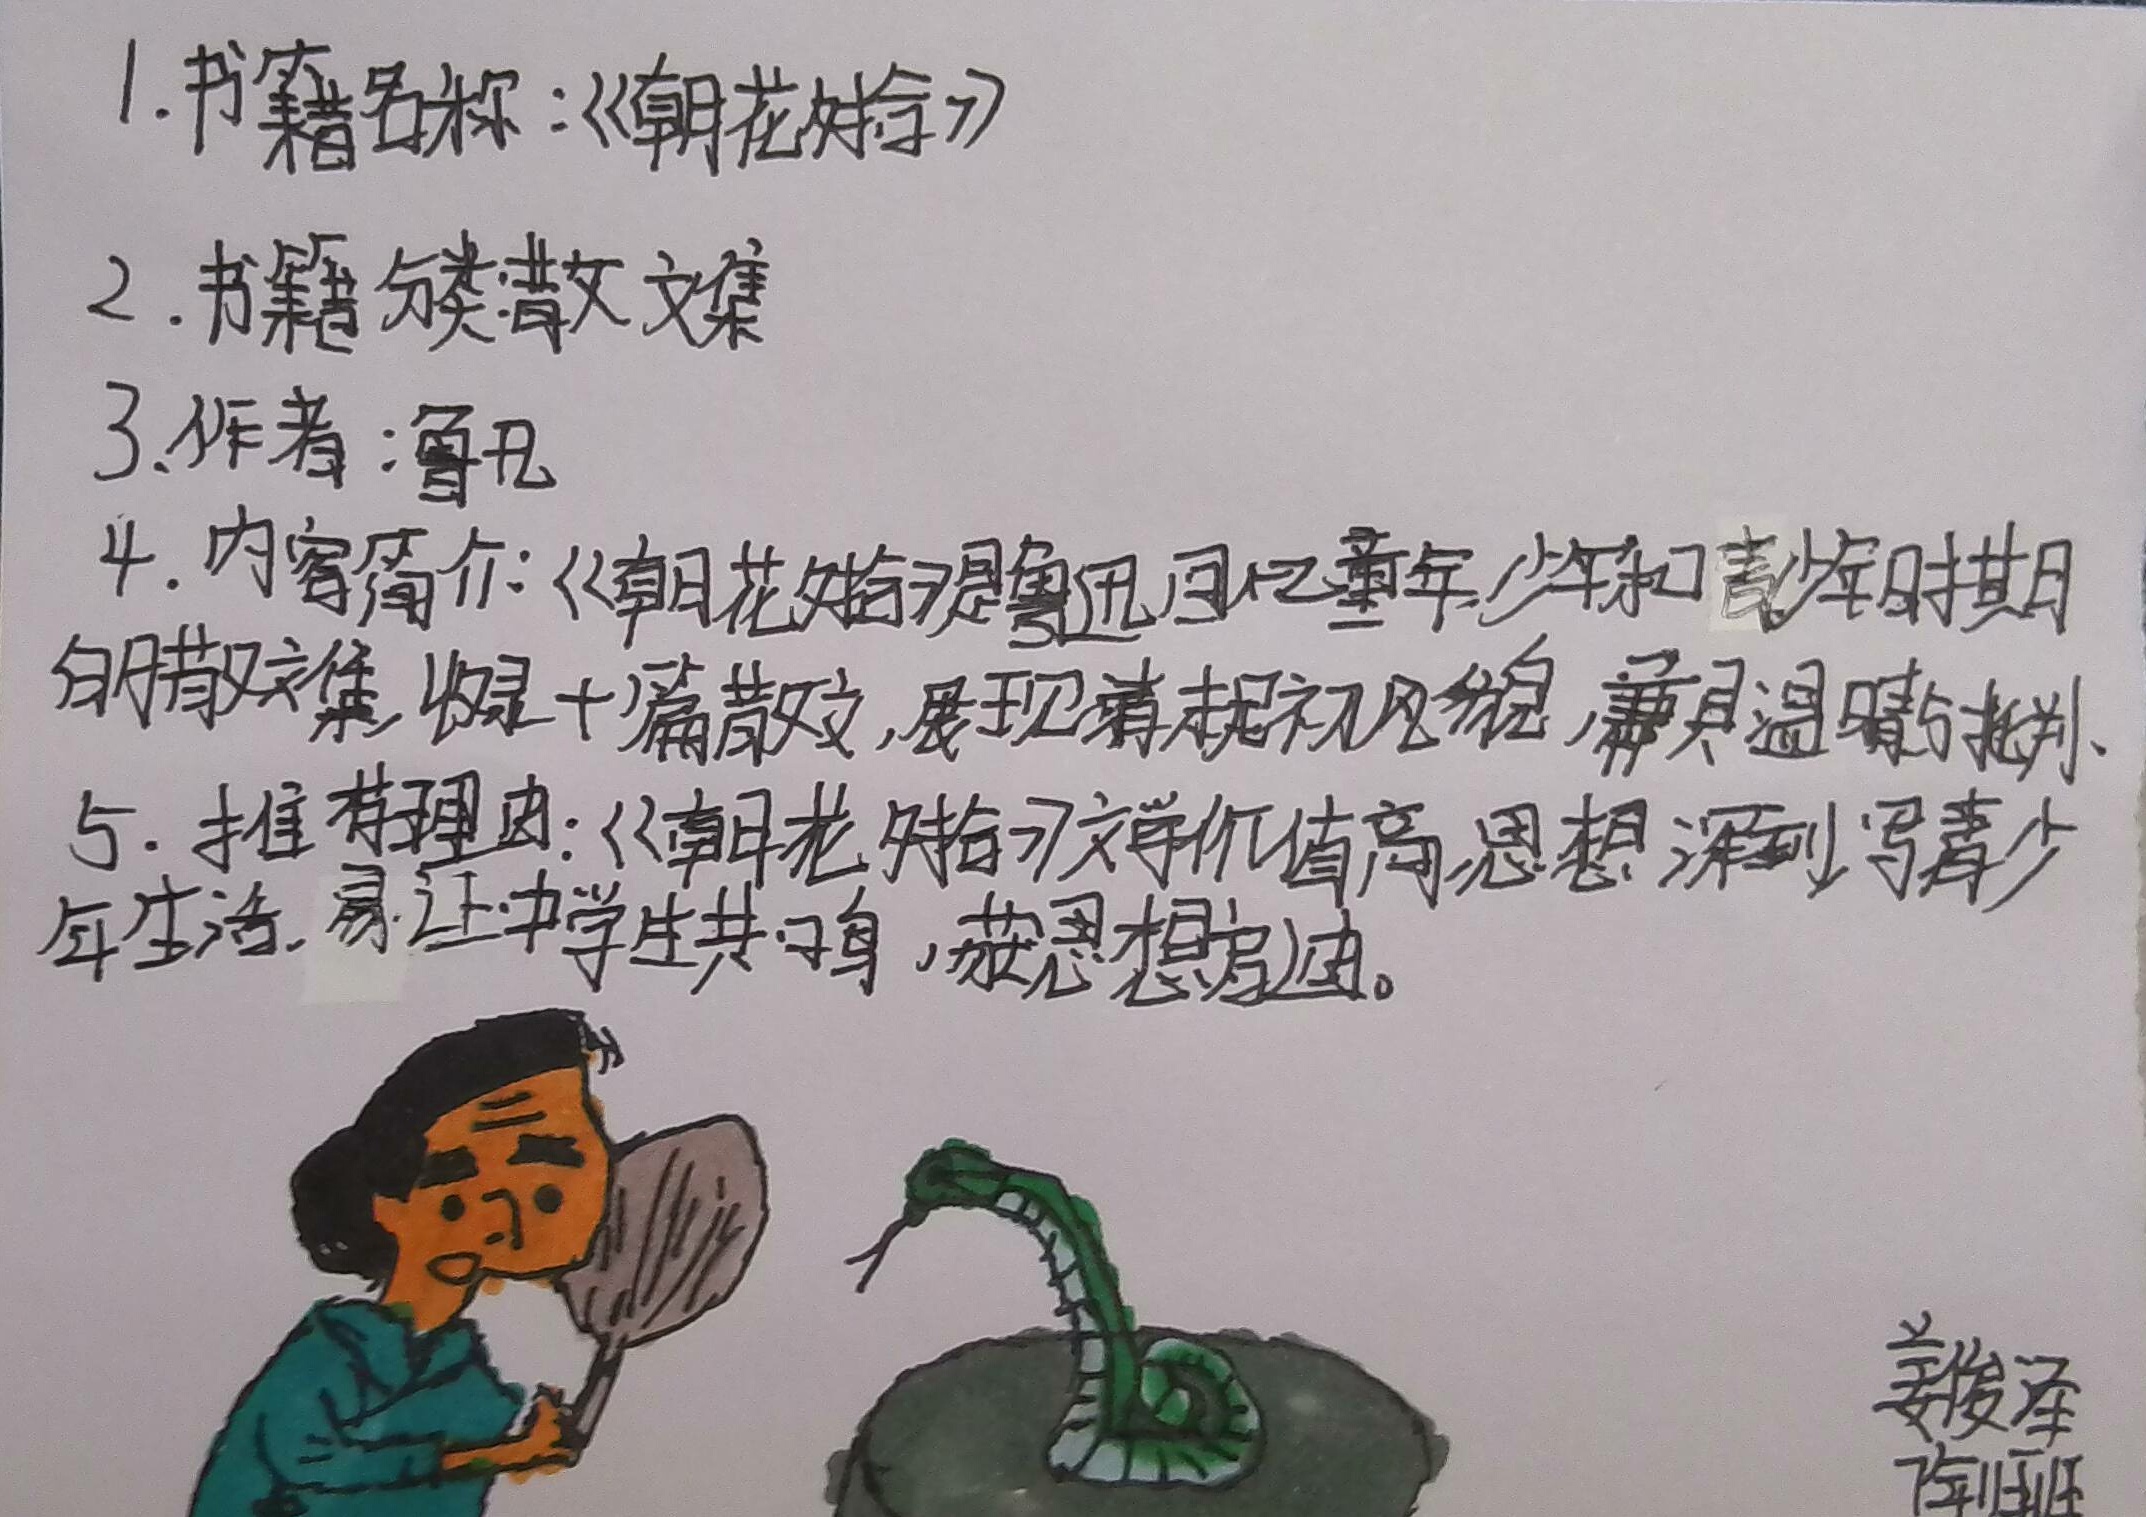 1.书籍名称:《朝花夕拾》
2.书籍分类:散文文集
3.作者:鲁迅
4.内容简介:《朝花夕拾》是鲁迅回忆童年,少年和青少年时期
的散文集,收录十篇散文,展现清末民初风貌,兼具温情与批判、
5.推荐理由:《朝花夕拾》文学价值高,思想深刻写青少
年生活,易让中学生共鸣,获思想启迪。
姜俊泽